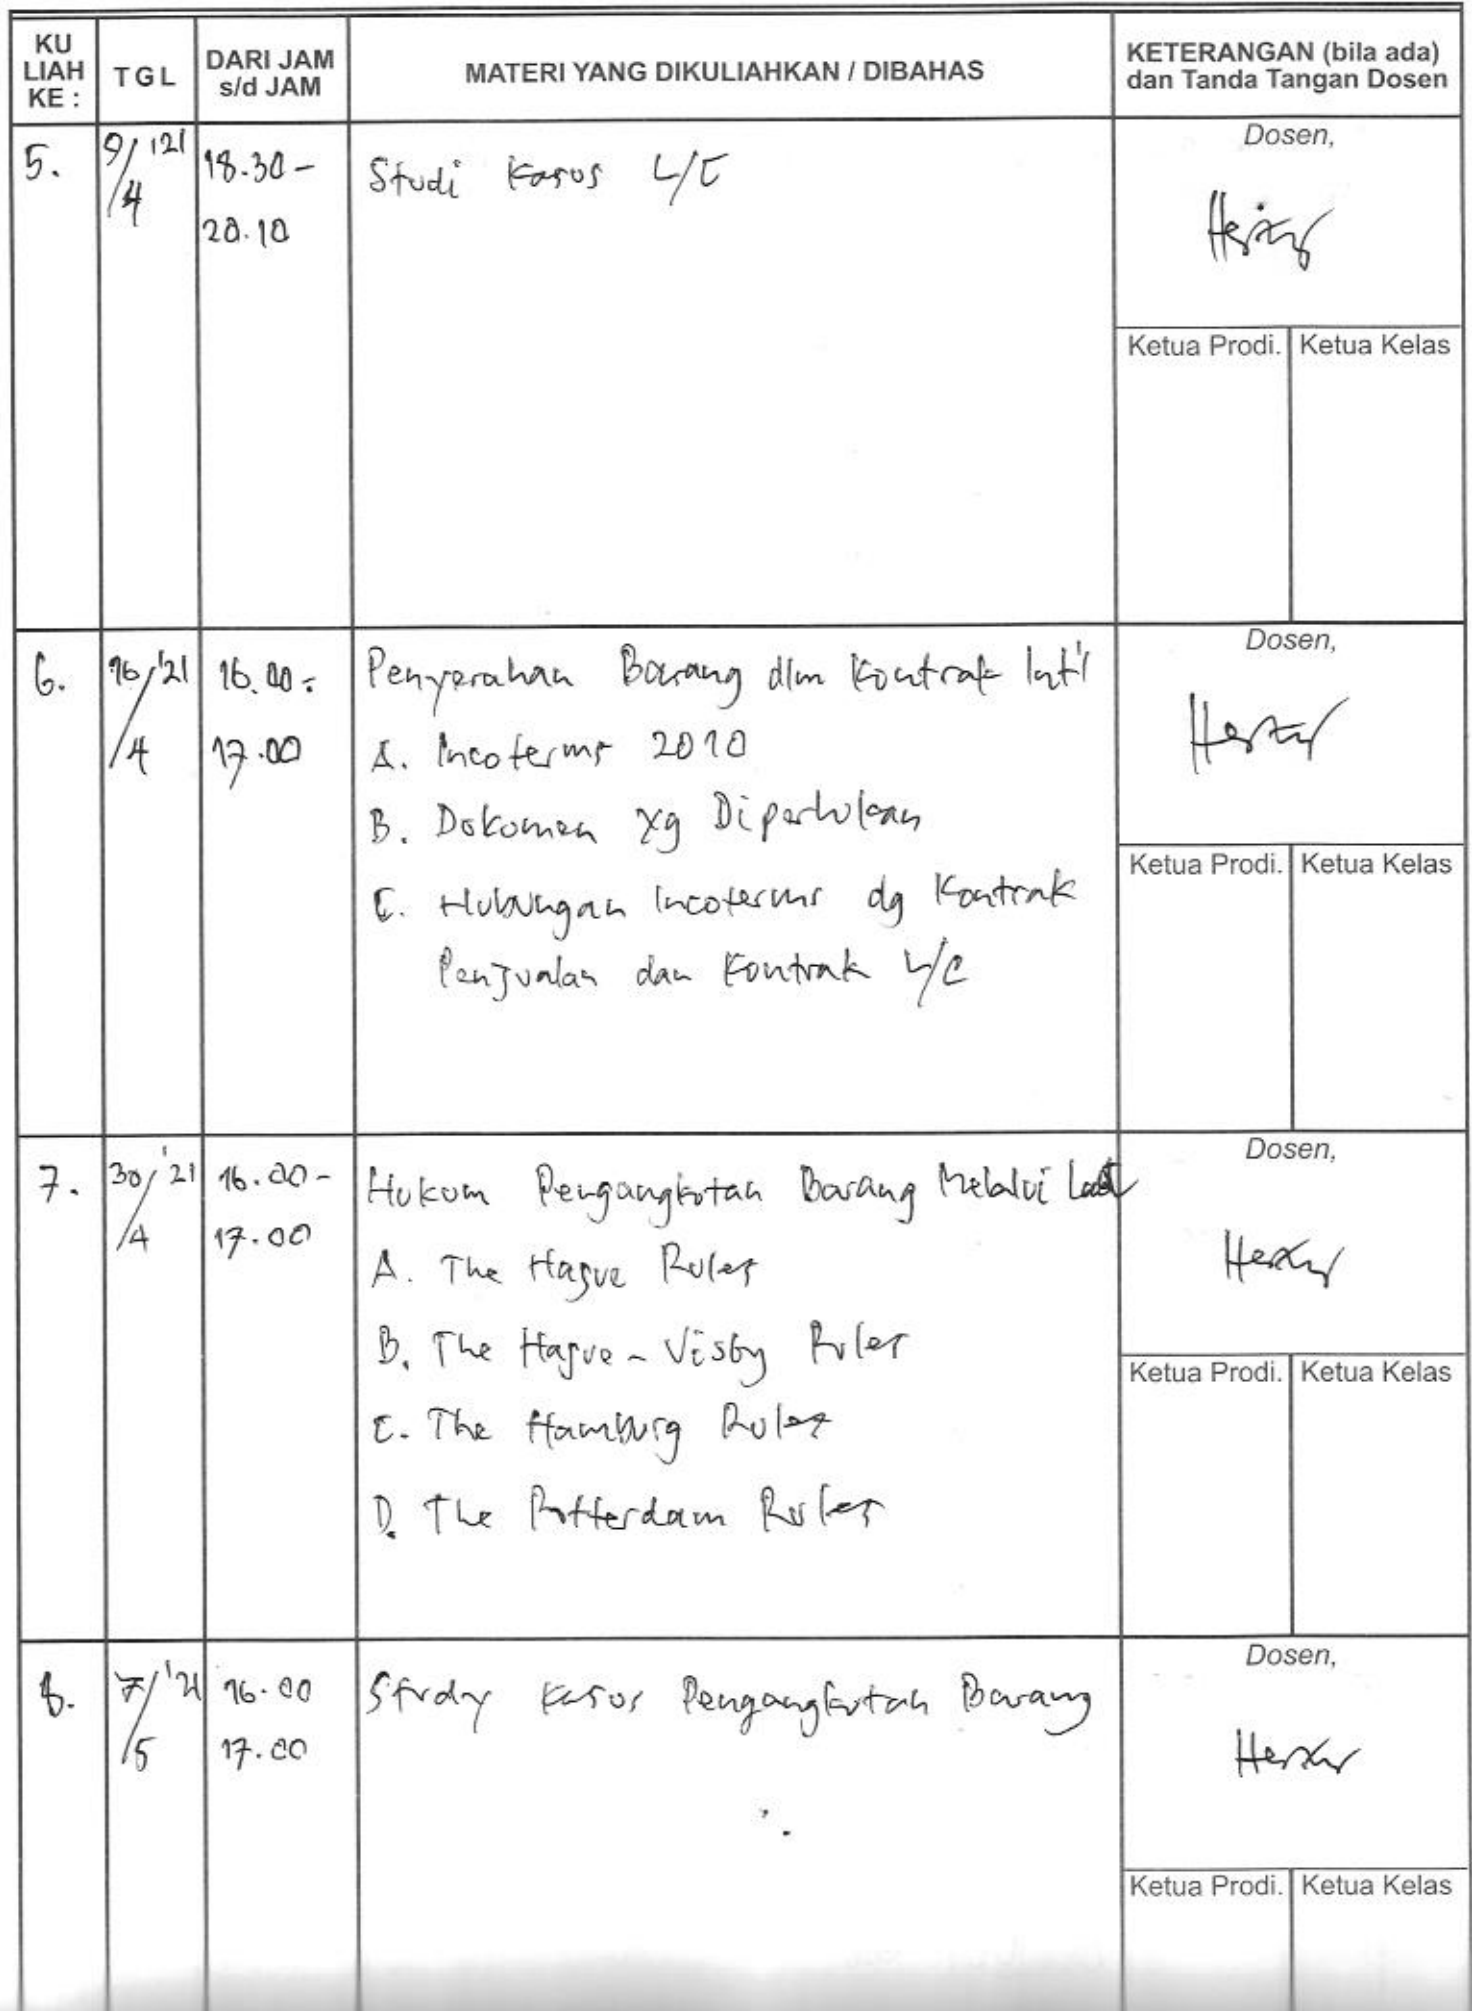 KU LIAH KE :
TGL
DARI JAM s/d JAM
MATERI YANG DIKULIAHKAN / DIBAHAS
KETERANGAN (bila ada) dan Tanda Tangan Dosen
5.
9/4 '21
18.30 -
20.10
Studi Kasus L/C
Dosen,
Ketua Prodi.
Ketua Kelas
6.
16/4 '21
16.00 -
17.00
Penyerahan Barang dlm Kontrak Int'l
A. Incoterms 2010
B. Dokumen yg Diperlukan
C. Hubungan Incoterms dg Kontrak
Penjualan dan Kontrak L/C
Dosen,
Ketua Prodi.
Ketua Kelas
7.
30/4 '21
16.00 -
17.00
Hukum Pengangkutan Barang Melalui Laut
A. The Hague Rules
B. The Hague - Visby Rules
C. The Hamburg Rules
D. The Rotterdam Rules
Dosen,
Ketua Prodi.
Ketua Kelas
8.
7/5 '21
16.00
17.00
Study Kasus Pengangkutan Barang
Dosen,
Ketua Prodi.
Ketua Kelas